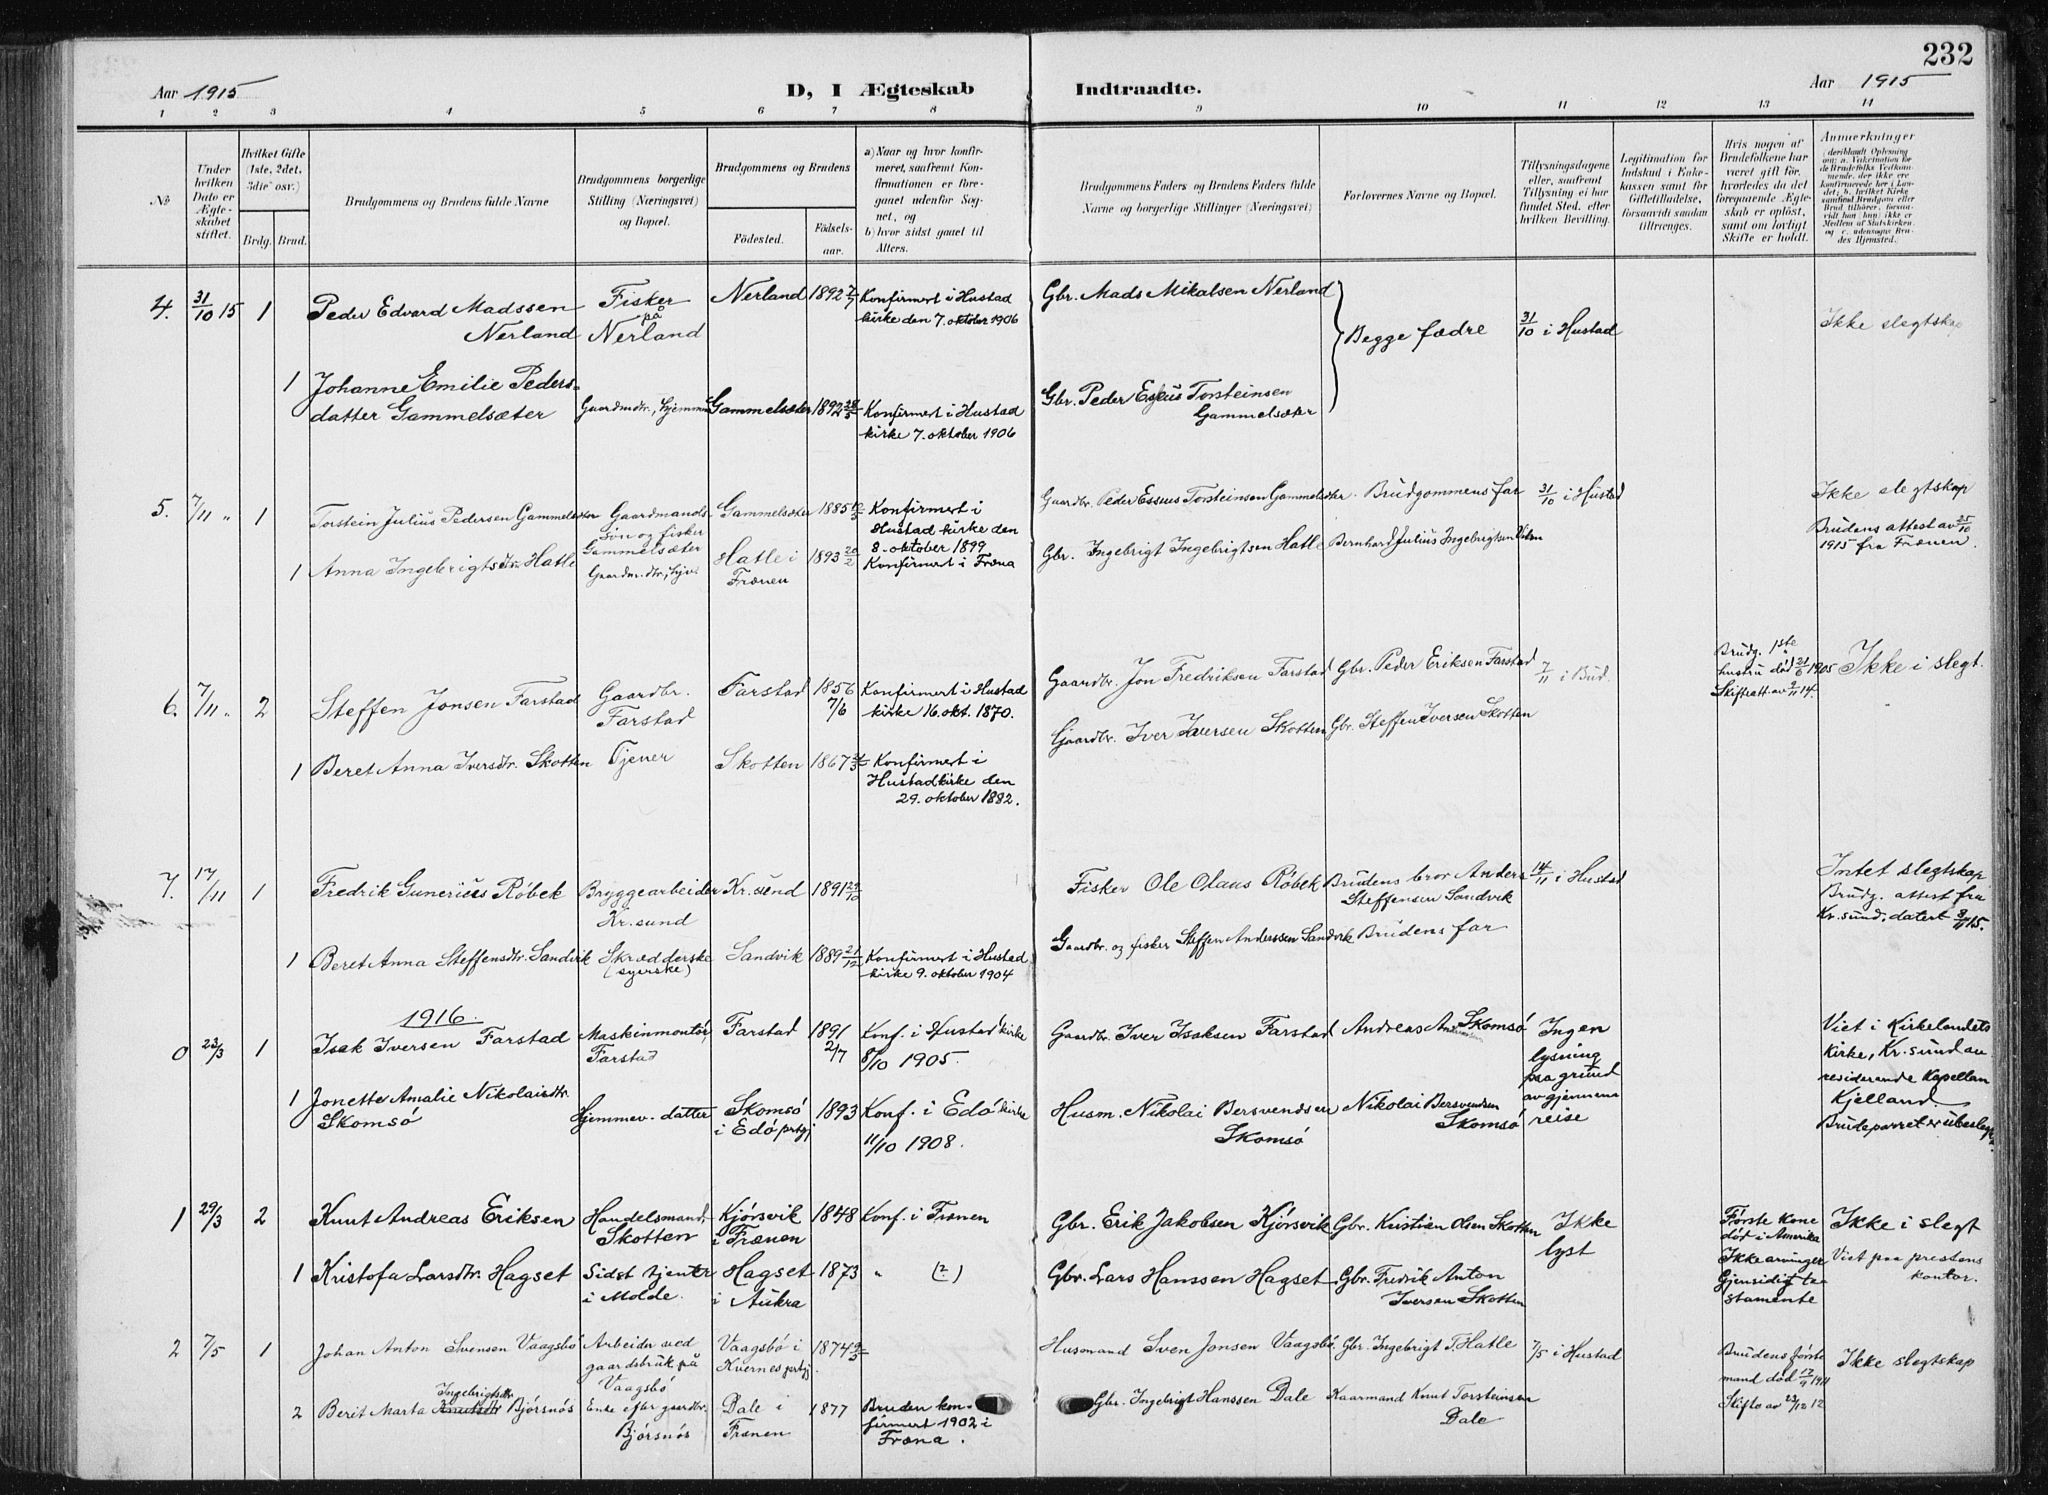 232
Aar 1915
D, I Ægteskab
Indtraadte.
Aar 1915
1 2 3 4 5 6 7 8 9 10 11 12 13 14
No
Under hvilken Dato er Ægteskabet stiftet.
Hvilket Gifte (1ste, 2det, 3die osv.)
Brdg. Brud.
Brudgommens og Brudens fulde Navne
Brudgommens borgerlige Stilling (Næringsvei) og Bopæl.
Brudgommens og Brudens
Fødested.
Fødselsaar.
a) Naar og hvor konfirmeret, saafremt Konfirmationen er foregaaet udenfor Sognet, og
b) hvor sidst gaaet til Alters.
Brudgommens Faders og Brudens Faders fulde Navne og borgerlige Stillinger (Næringsvei)
Forlovernes Navne og Bopæl.
Tillysningsdagene eller, saafremt Tillysning ei har fundet Sted, efter hvilken Bevilling.
Legitimation for Indskud i Enkekassen samt for Giftetilladelse, forsaavidt saadan tiltrænges.
Hvis nogen af Brudefolkene har været gift før, hvorledes da det foregaaende Ægteskab er opløst, samt om lovligt Skifte er holdt.
Anmerkninger
(deriblandt Oplysning om: a. Vakcination for de Brudefolks Vedkommende, der ikke ere konfirmerede her i Landet; b. hvilket Kirkesamfund Brudgom eller Brud tilhører, forsaavidt han (hun) ikke er Medlem af Statskirken, og c. udensogns Brudes Hjemsted.
4. 31/10 15 1 Peder Edvard Madssen Nerland
Fisker på Nerland
Nerland 1892 7/7
Konfirmert i Hustad kirke den 7. oktober 1906
Gbr. Mads Mikalsen Nerland
Begge fædre
31/10 i Hustad
Ikke slegtskap
1 Johanne Emilie Pedersdatter Gammelsæter
Gaardmdtr., hjemme
Gammelsæter 1892 28/5
Konfirmert i Hustad kirke 7. oktober 1906
Gbr. Peder Esius Torsteinsen Gammelsæter
5. 7/11 " 1 Torstein Julius Pedersen Gammelsæter
Gaardmands søn og fisker Gammelsæter
Gammelsæter 1885 12/3
Konfirmert i Hustad kirke den 8. oktober 1899
Gaardbr. Peder Essius Torsteinsen Gammelsæter. Brudgommens far
31/10 i Hustad
Ikke slegtskap
Brudens attest av 25/10 1915 fra Frænen.
1 Anna Ingebrigtsdtr. Hatle
Gaardm.dtr., hjv.
Hatle i Frænen 1893 20/2
Konfirmert i Fræna
Gbr. Ingebrigt Ingebrigtsen Hatle Bernhard Julius Ingebrigtsen
6. 7/11 " 2 Steffen Jonsen Farstad
Gaardbr. Farstad
Farstad 1856 7/6
Konfirmert i Hustad kirke 16. okt. 1870.
Gaardbr. Jon Fredriksen Farstad Gbr. Peder Eriksen Farstad
7/11 i Bud.
Brudg. 1ste hustru død 21/6 1905 Skifteatt. av 9/11 14.
Ikke i slegt.
1 Beret Anna Iversdtr. Skotten
Tjener
Skotten 1867 24/3
Konfirmert i Hustadkirke den 29. oktober 1882.
Gaardbr. Iver Iversen Skotten Gbr. Steffen Iversen Skotten
7. 17/11 1 Fredrik Gunerius Røbek
Bryggearbeider Kr.sund
Kr.sund 1891 23/10
Fisker Ole Olaus Røbek
Brudens bror Anders Steffensen Sandvik
14/11 i Hustad
Intet slegtskap
Brudg. attest fra Kr.sund, datert 8/11 15.
1 Beret Anna Steffensdtr. Sandvik
Skrædderske (syerske)
Sandvik 1889 21/12
Konfirmert i Hustad kirke 9. oktober 1904
Gaardbr. og fisker Steffen Anderssen Sandvik Brudens far
1916.
0 23/3 1 Isak Iversen Farstad
Maskinmontør, Farstad
Farstad 1891 2/7
Konf. i Hustad kirke 8/10 1905.
Gaardbr. Iver Isaksen Farstad
Andreas Skomsø
Ingen lysning paa grund av gjennemreise
Viet i Kirkelandets kirke, Kr.sund av residerende kapellan Kjelland.
Brudeparret er ubeslegt.
1 Jonette Amalie Nikolaisdtr. Skomsø
Hjemmev. datter
Skomsø i Edø prtgj 1893
Konf. i Edø kirke 11/10 1908.
Husm. Nikolai Bersvendsen Skomsø
Nikolai Bersvendsen Skomsø
1 29/3 2 Knut Andreas Eriksen
Handelsmand, Skotten
Kjørsvik i Frænen 1848
Konf. i Frænen
Gbr. Erik Jakobsen Kjørsvik Gbr. Kristian Olsen Skotten
Ikke lyst
Første kone død i Amerika Ikke arvinger Gjensidig testamente
Ikke i slegt
Viet paa prestens kontor.
1 Kristofa Larsdtr. Hagset
Sidst tjener i Molde.
Hagset i Aukra 1873
" (?)
Gbr. Lars Hanssen Hagset Gbr. Fredrik Anton Iversen Skotten
2 7/5 1 Johan Anton Svensen Vaagsbø
Arbeider ved gaardsbruk på Vaagsbø
Vaagsbø i Kvernes prtgj 1874 9/3
Husmand Sven Jonsen Vaagsbø. Gbr. Ingebrigt T. Hatle
7/5 i Hustad
Brudens første mand død 17/9 1911 Skifte av 23/12 12
Ikke slegtskap
2 Berit Marta Ingebrigtsdtr. Knutsdtr Bjørsnøs
Enke efter gaardbr. Bjørsnøs
Dale i Frænen 1877
Bruden konfirmert 1902 i Fræna.
Gbr. Ingebrigt Hanssen Dale Kaarmand Knut Torsteinsen Dale